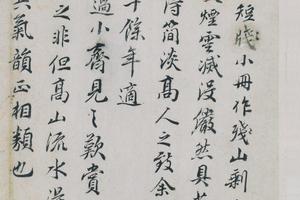 短牋小冊作殘山剩
煙雲滅没儼然具
得簡淡高人之致余
十餘年適
過小齋見之歎賞
之非但高山流水
其氣韻正相類也